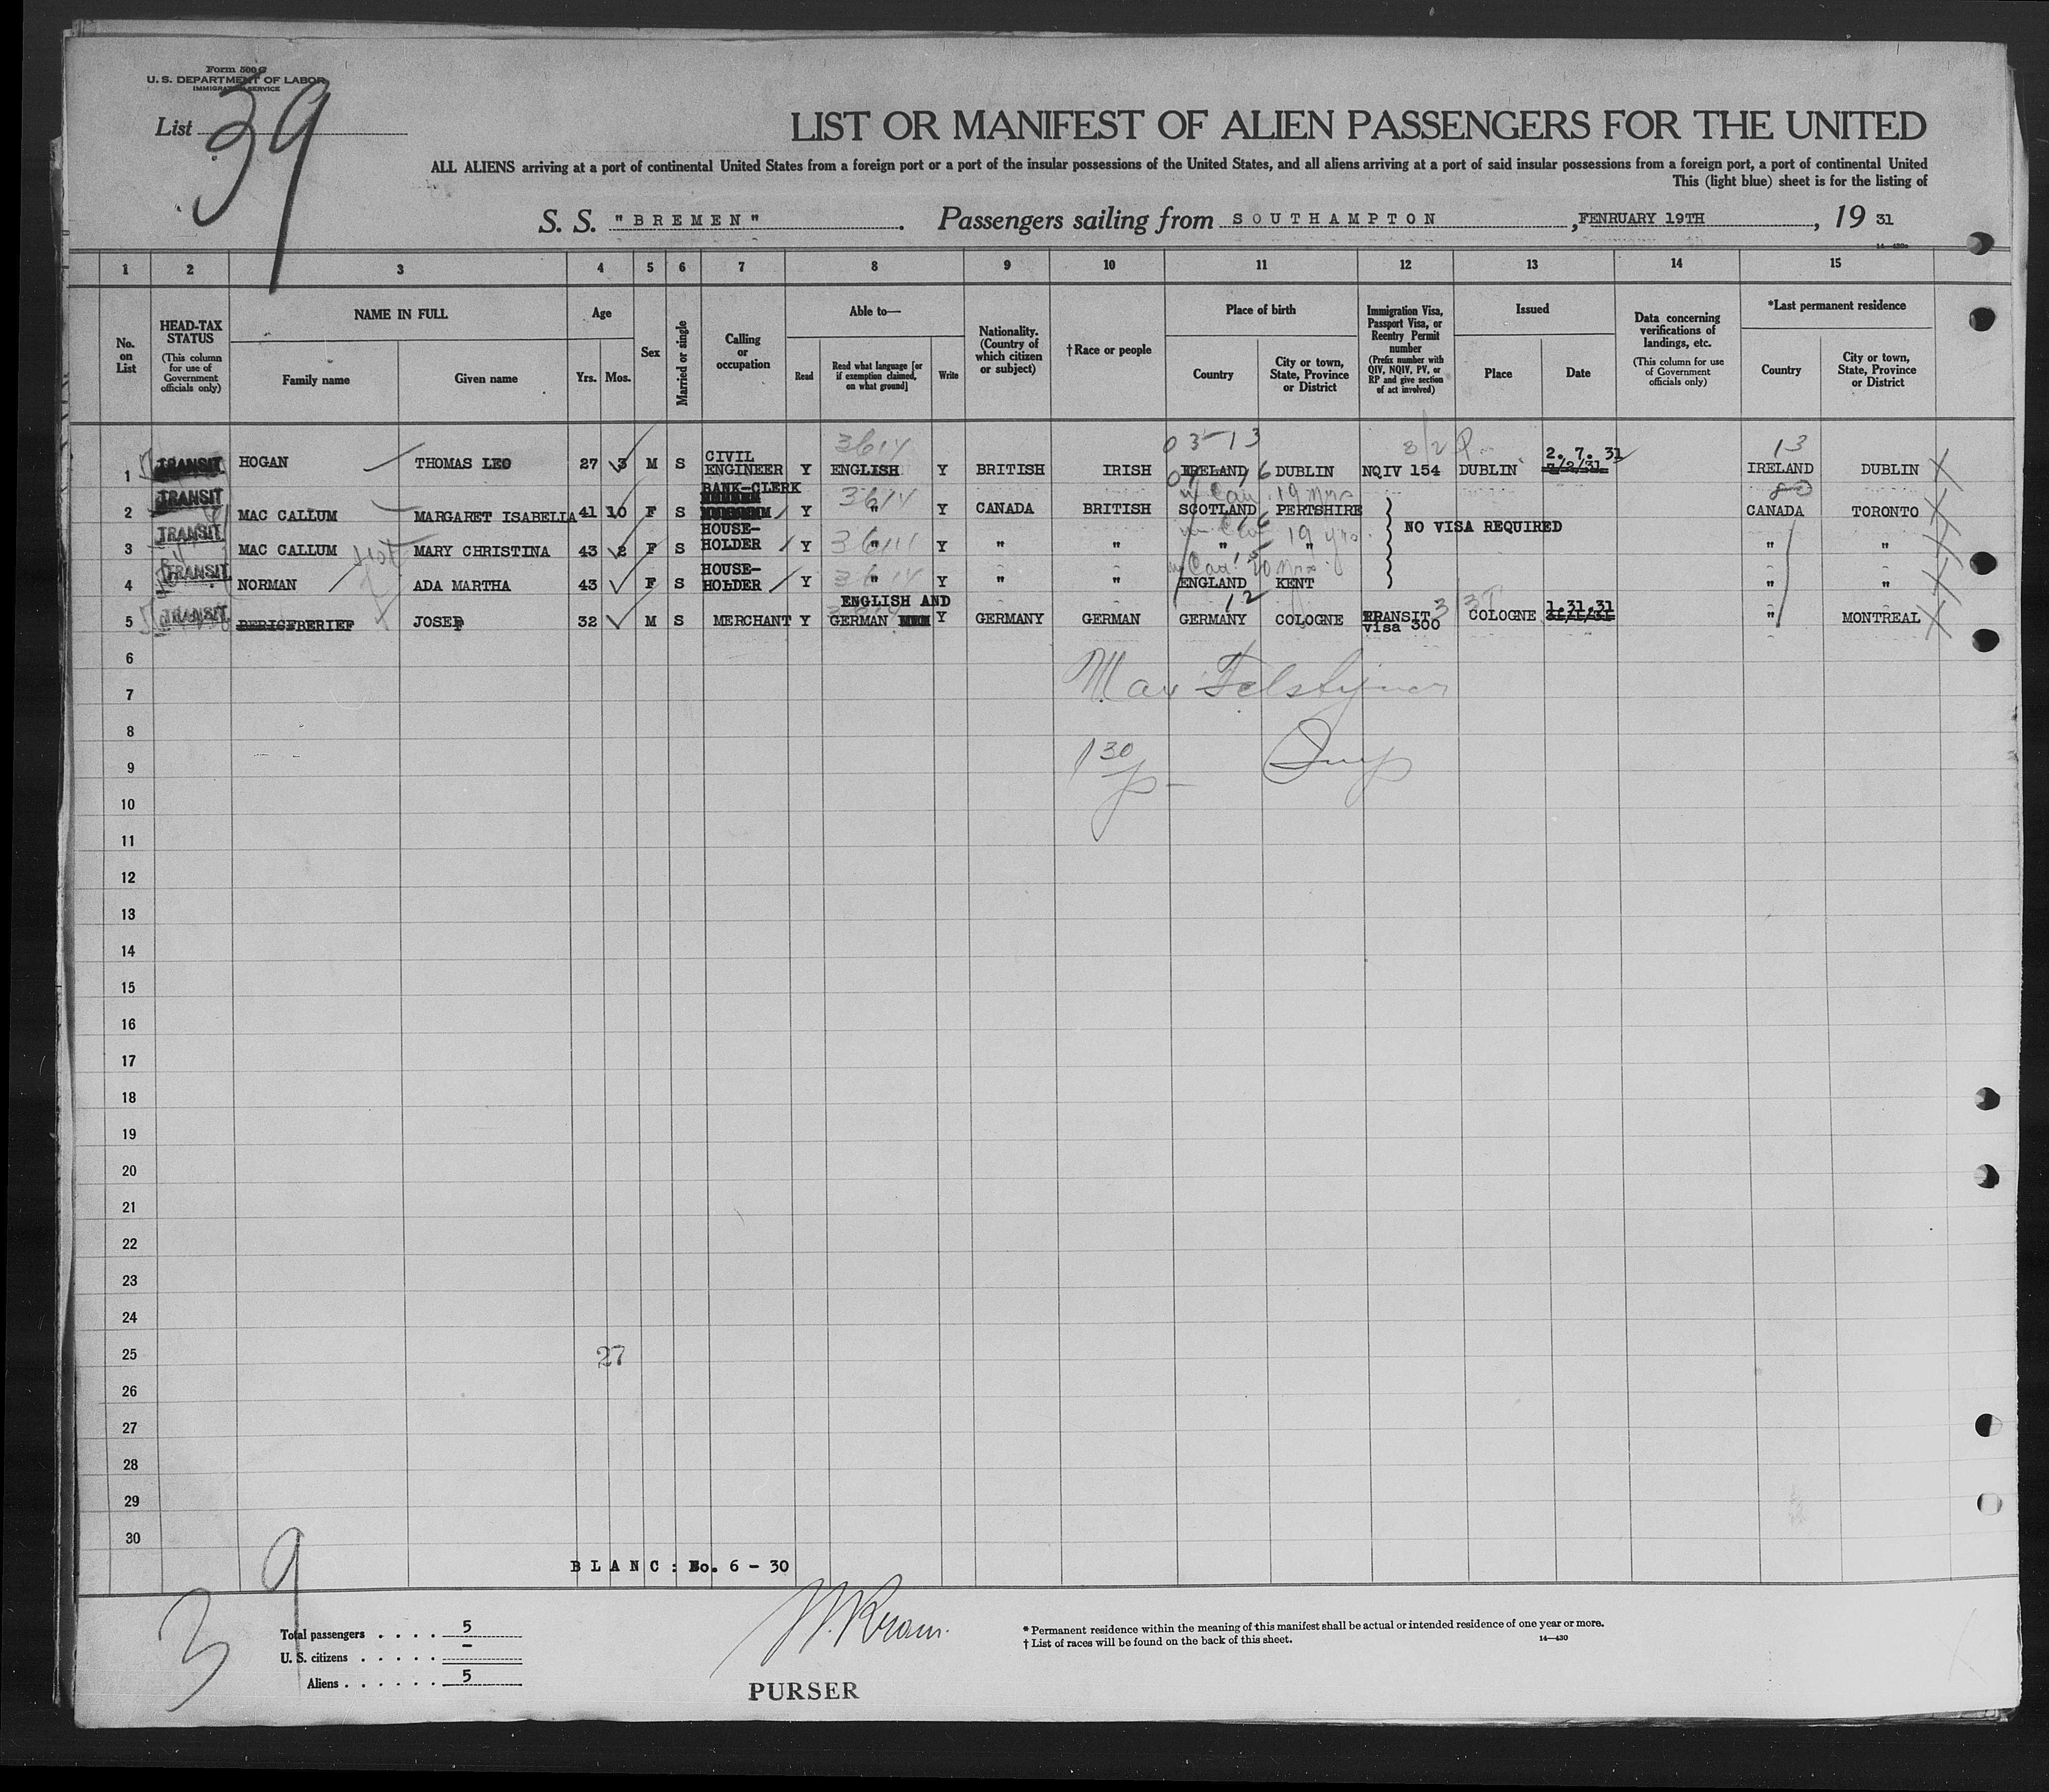 Form 500 G
U. S. DEPARTMENT OF LABOR
IMMIGRATION SERVICE
List 39
LIST OR MANIFEST OF ALIEN PASSENGERS FOR THE UNITED
ALL ALIENS arriving at a port of continental United States from a foreign port or a port of the insular possessions of the United States, and all aliens arriving at a port of said insular possessions from a foreign port, a port of continental United
This (light blue) sheet is for the listing of
S. S. "BREMEN" . Passengers sailing from SOUTHAMPTON , FENRUARY 19TH , 19 31
1 2 3 4 5 6 7 8 9 10 11 12 13 14 15
No. on List
HEAD-TAX STATUS (This column for use of Government officials only)
NAME IN FULL
Family name Given name
Age
Yrs. Mos.
Sex
Married or single
Calling or occupation
Able to—
Read Read what language [or if exemption claimed, on what ground] Write
Nationality. (Country of which citizen or subject)
†Race or people
Place of birth
Country City or town, State, Province or District
Immigration Visa, Passport Visa, or Reentry Permit number (Prefix number with QIV, NQIV, PV, or RP and give section of act involved)
Issued
Place Date
Data concerning verifications of landings, etc. (This column for use of Government officials only)
*Last permanent residence
Country City or town, State, Province or District
03-13 13
1 TRANSIT HOGAN THOMAS LEO 27 3 M S CIVIL ENGINEER Y 3614 ENGLISH Y BRITISH IRISH IRELAND DUBLIN NQIV 154 DUBLIN 2. 7. 31 7/2/31 IRELAND DUBLIN
in Can. 19 yrs 80
2 TRANSIT MAC CALLUM MARGARET ISABELLA 41 10 F S BANK-CLERK Y 3614 " Y CANADA BRITISH SCOTLAND PERTSHIRE NO VISA REQUIRED CANADA TORONTO
19 yrs.
3 TRANSIT MAC CALLUM MARY CHRISTINA 43 2 F S HOUSE-HOLDER Y " Y " " " " " "
in Can. 20 yrs.
4 TRANSIT NORMAN ADA MARTHA 43 F S HOUSE-HOLDER Y 3614 " Y " " ENGLAND KENT " "
12
5 TRANSIT BERIEF JOSEF 32 M S MERCHANT Y ENGLISH AND GERMAN Y GERMANY GERMAN GERMANY COLOGNE TRANSIT visa 300 COLOGNE 1.31.31 31/1/31 " MONTREAL
6
7
8
9
1 30 p
10
11
12
13
14
15
16
17
18
19
20
21
22
23
24
25
27
26
27
28
29
30
BLANC: No. 6 - 30
39
Total passengers . . . . 5
U. S. citizens . . . . . –
Aliens . . . . . . 5
PURSER
* Permanent residence within the meaning of this manifest shall be actual or intended residence of one year or more.
† List of races will be found on the back of this sheet.
14—430